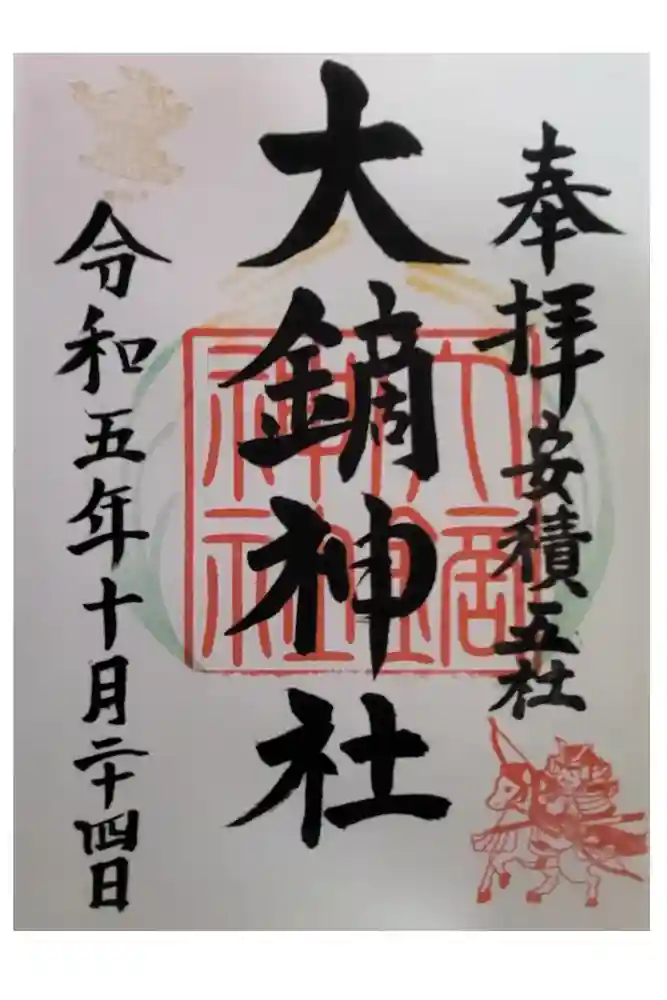 奉拝
安積五社
大鏑神社
大鏑神社
令和五年十月二十四日